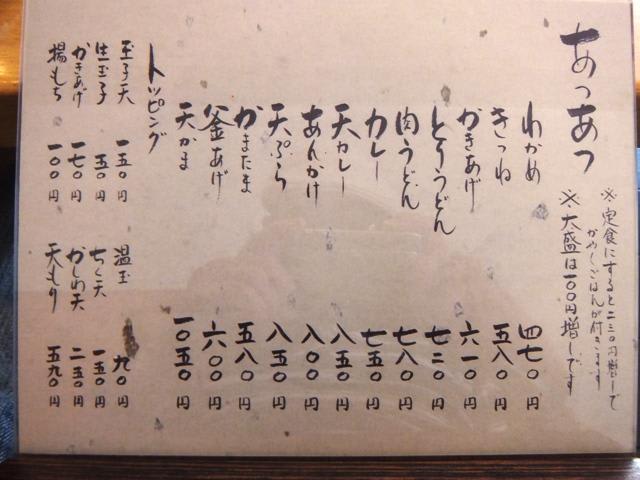 あつあつ
※定食にすると二三〇円増しで
かやくごはんが付きます
※大盛は一〇〇円増しです
わかめ 四七〇円
きつね 五八〇円
かきあげ 六一〇円
とりうどん 七二〇円
肉うどん 七八〇円
カレー 七五〇円
天カレー 八五〇円
あんかけ 八〇〇円
天ぷら 八五〇円
かまたま 五八〇円
釜あげ 六〇〇円
天かま 一〇五〇円
トッピング
玉子天 一五〇円
温玉 九〇円
生玉子 五〇円
ちく天 一五〇円
かきあげ 一七〇円
かしわ天 二五〇円
揚もち 一〇〇円
天もり 五九〇円